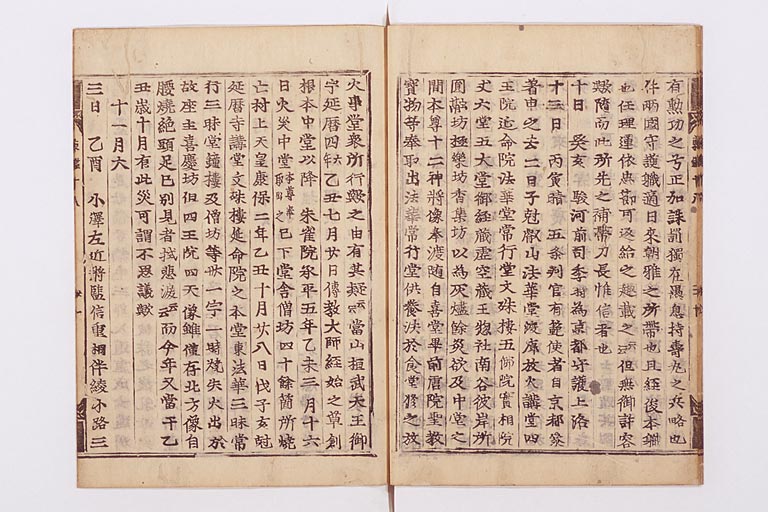 有勲功之号正加誅罰獨在愚息持壽丸之兵略也
件両國守護職適日来朝雅之所帯也且経俊本職
也任理運依忠節可返給之趣載之云云但無御許容
歟随而此所先之補帯刀長惟信者也
十日　癸亥　駿河前司季時為京都守護上洛
十三日丙寅晴五条判官有範使者自京都来
著申之去二日子剋叡山法華堂渡廊放火講堂四
王院延命院法華堂常行堂文殊樓五佛院實相院
丈六堂五大堂御経蔵虚空蔵王惣社南谷彼岸所
圓融坊極樂坊香集坊以為灰燼餘炎欲及中堂之
間本尊十二神將像奉渡随自喜堂畢前唐院聖教
寳物等奉取出法華常行堂供養法於食堂修之放
火事堂衆所行歟之由有其疑云云當山桓武天王御
宇延暦四年乙丑七月廿日傳教大師経始之草創
根本中堂以降朱雀院承平五年乙未三月十六
日火災中堂本尊奉取出之已下堂舎僧坊四十餘箇所焼
亡村上天皇康保二年乙丑十月廿八日戊子亥剋
延暦寺講堂文殊樓延命院之本堂東法華三昧常
行三昧堂鐘樓及僧坊等卅一宇一時焼失火出於
故座主喜慶坊但四王院四天像雖積在北方像自
腰焼絶頭足已別見者拭悲涙云云而今年又當于乙
丑歳十月有此災可謂不思議歟
十一月大
三日　乙酉　小澤左近將監信重相伴綾小路三